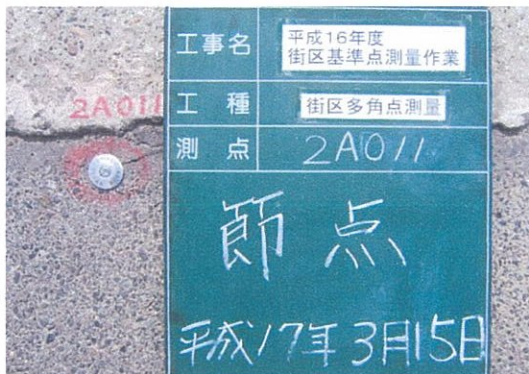 2A011
工事名 平成16年度
街区基準点測量作業
工種 街区多角点測量
測点 2A011
節点
平成17年3月15日